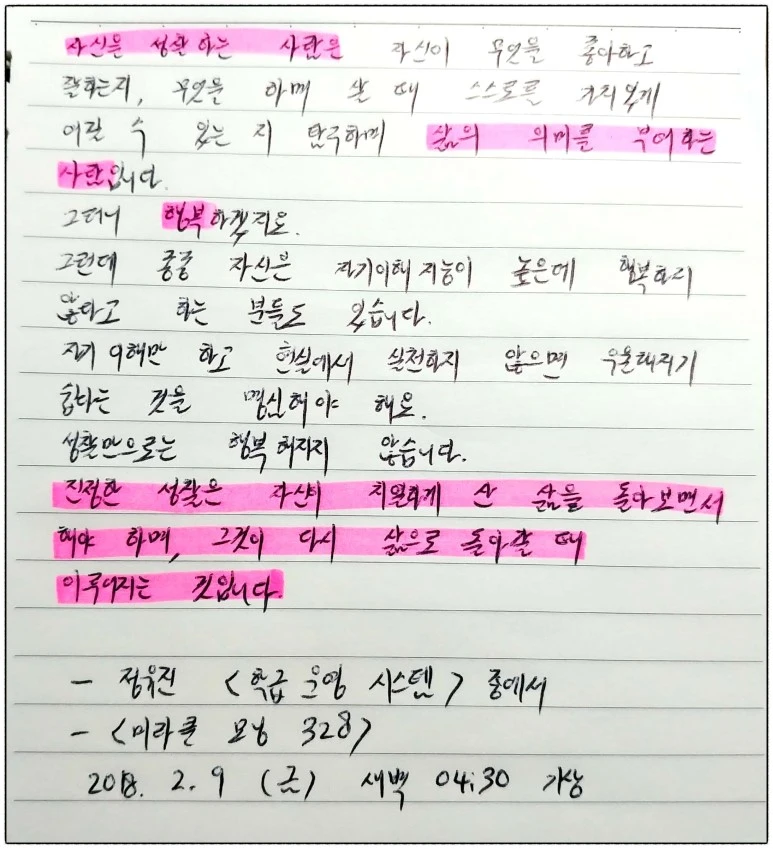 자신을 성찰하는 사람은 자신이 무엇을 좋아하고
잘하는지, 무엇을 하며 살 때 스스로를 가치있게
여길 수 있는 지 탐구하며 삶의 의미를 부여하는
사람입니다.
그러니 행복하겠지요.
그런데 종종 자신은 자기이해지능이 높은데 행복하지
않다고 하는 분들도 있습니다.
자기 이해만 하고 현실에서 실천하지 않으면 우울해지기
쉽다는 것을 명심해야 해요.
성찰만으로는 행복해지지 않습니다.
진정한 성찰은 자신이 치열하게 산 삶을 돌아보면서
해야 하며, 그것이 다시 삶으로 돌아갈 때
이루어지는 것입니다.
- 정유진 <학급 운영 시스템> 중에서
- <미라클 모닝 328>
2018. 2. 9 (금) 새벽 04:30 기상